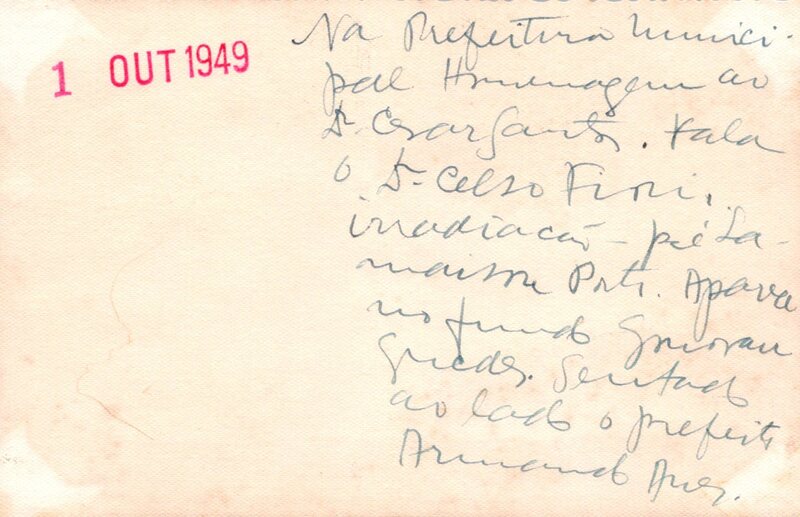 1 OUT 1949
Na Prefeitura Munici-
pal Homenagem ao
Dr. Cesar . Fala
o Dr. Celso Fiori,
irradiação - pé La-
maison Poti. Aparece
no fundo
Guedes. Sentado
ao lado o prefeito
Armando Anes.